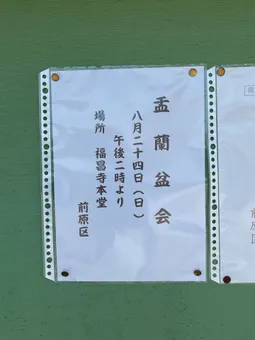 盂蘭盆会
八月二十四日（日）
午後二時より
場所　福昌寺本堂
前原区
前原区